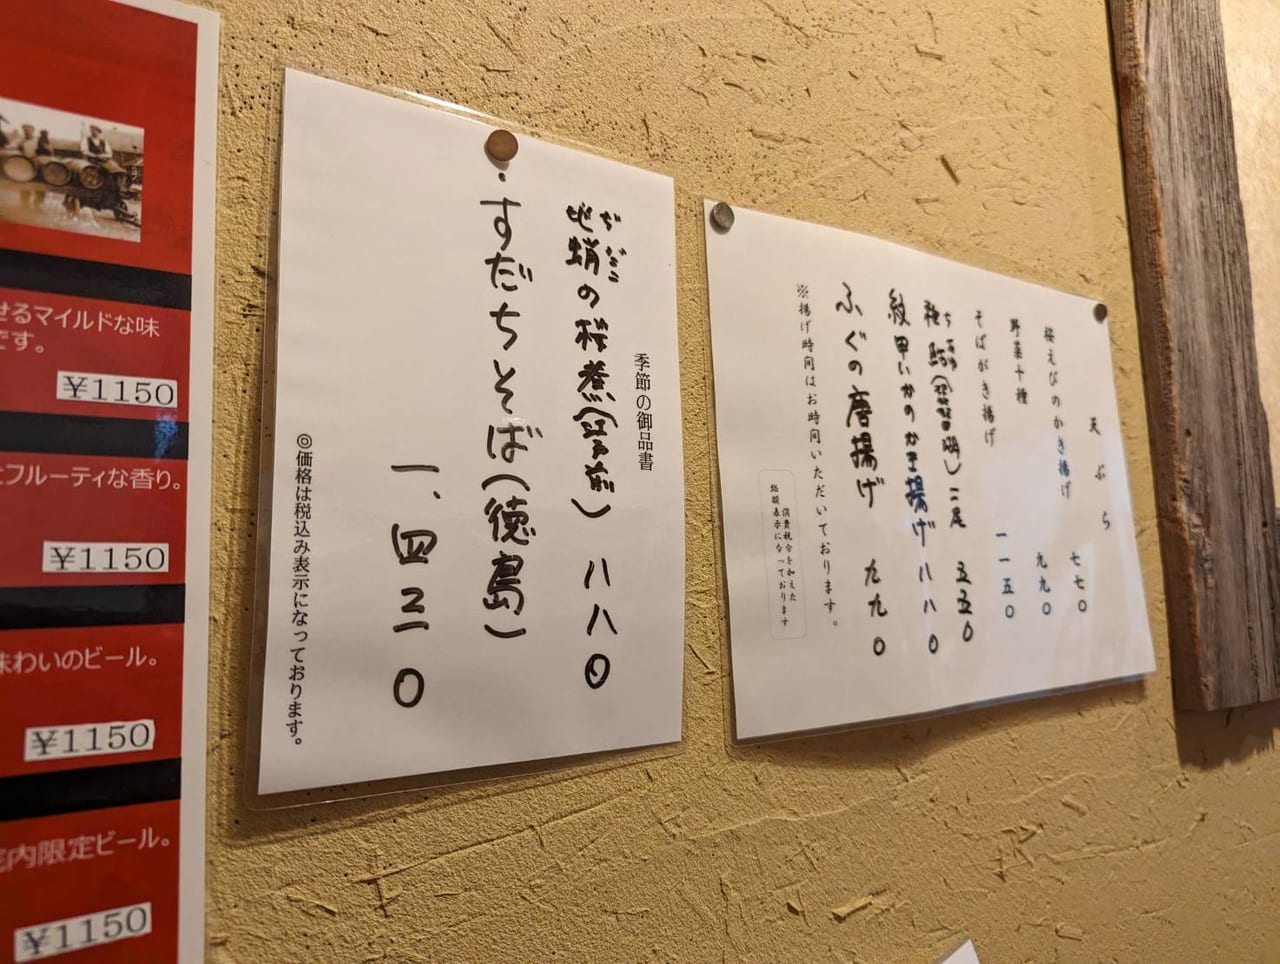 せるマイルドな味
です。
¥1150
フルーティな香り。
¥1150
味わいのビール。
¥1150
内限定ビール。
¥1150
季節の御品書
地蛸の桜煮(江戸前) 八八〇
すだちそば(徳島)
一、四三〇
◎価格は税込み表示になっております。
天ぷら
桜えびのかき揚げ 七七〇
野菜十種 九九〇
そばがき揚げ 一一五〇
ちあゆ
稚鮎(琵琶湖)二尾 五五〇
紋甲いかのかき揚げ 八八〇
ふぐの唐揚げ 九九〇
※揚げ時間はお時間いただいております。
消費税分を加えた
総額表示になっております